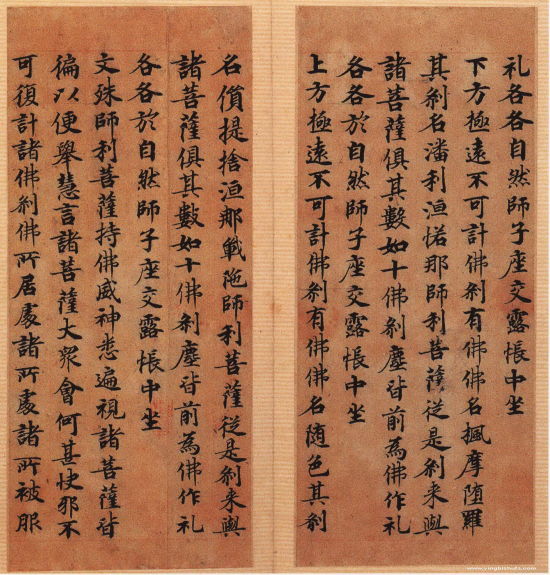 礼各各自然師子座交露帳中坐
下方極遠不可計佛刹有佛佛名摩堕羅
其刹名潘利洹惒那師利菩薩從是刹来與
諸菩薩俱其數如十佛刹塵皆前為佛作礼
各各於自然師子座交露帳中坐
上方極遠不可計佛刹有佛佛名随色其刹
名儨提捨洹那戰陁師利菩薩從是刹来與
諸菩薩俱其數如十佛刹塵皆前為佛作礼
各各於自然師子座交露帳中坐
文殊師利菩薩持佛威神悉遍視諸菩薩皆
徧以便舉慧言諸菩薩大衆會何甚快邪不
可復計諸佛刹佛所居處諸所處諸所被服
www.yingbishufa.com